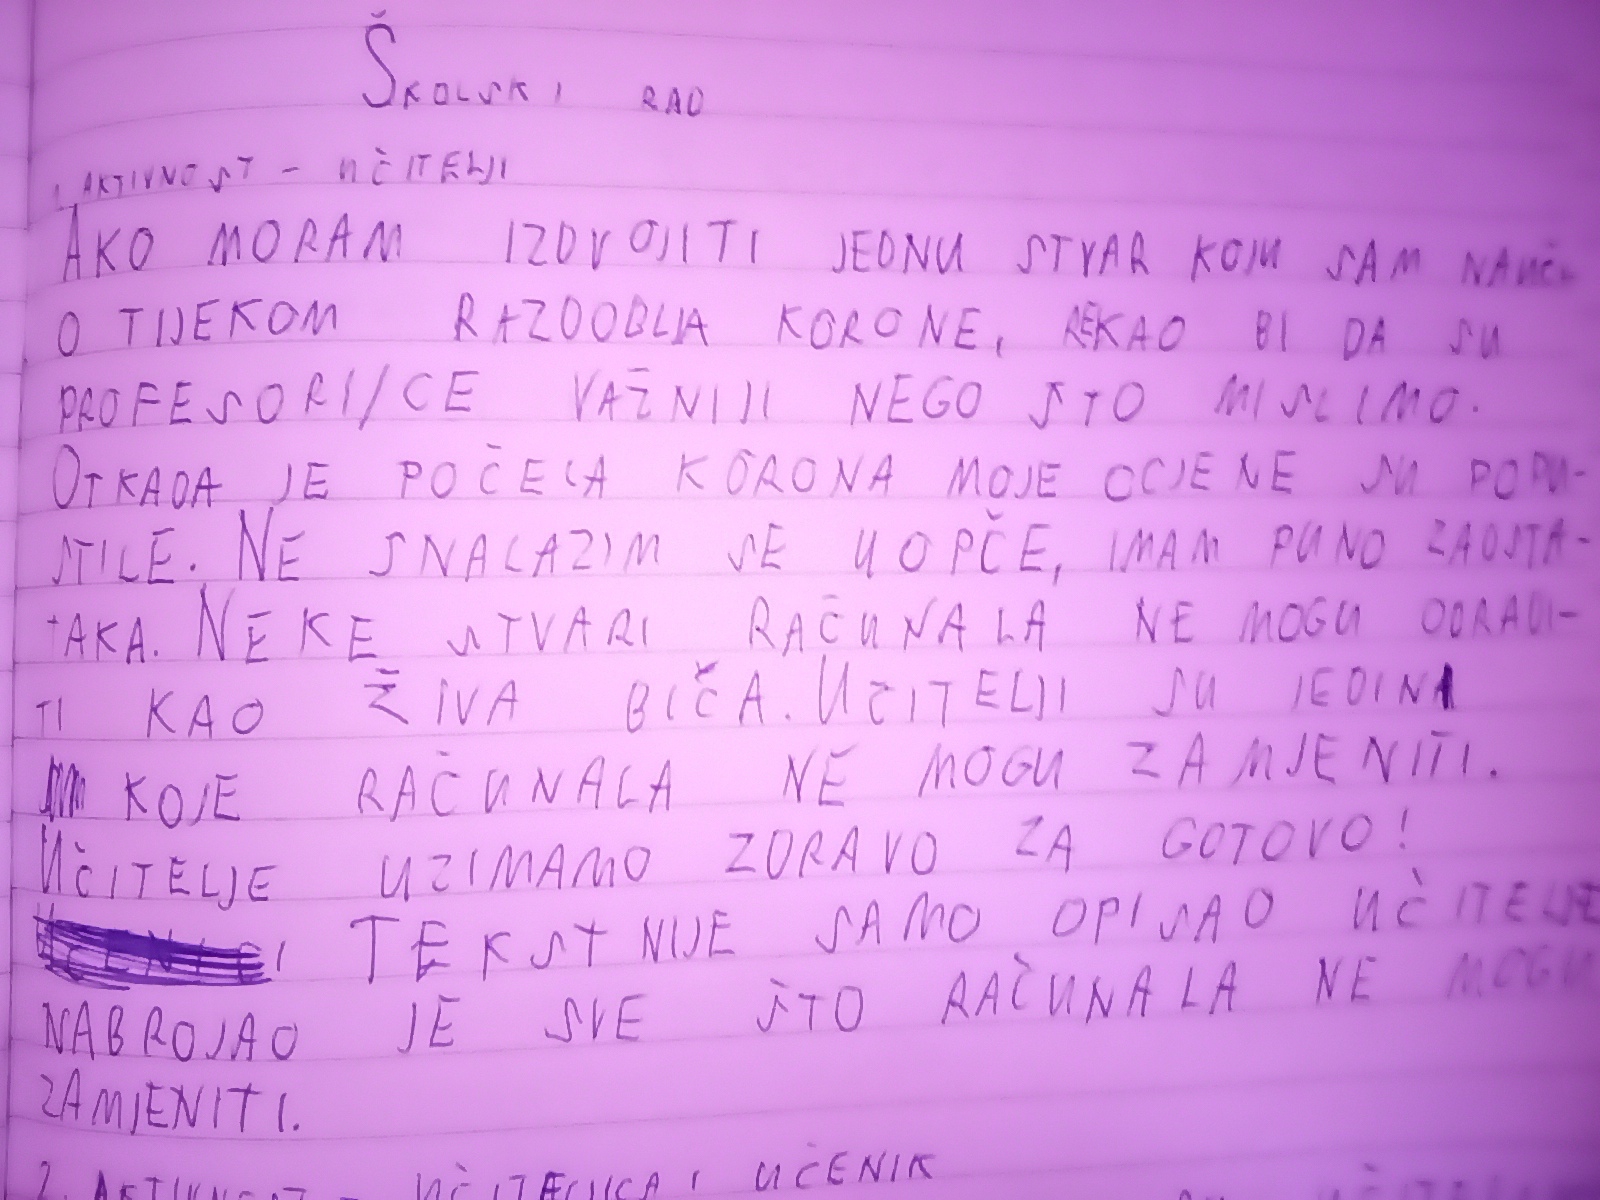 ŠKOLSKI RAD
1. AKTIVNOST - UČITELJI
AKO MORAM IZDVOJITI JEDNU STVAR KOJU SAM NAUČI-
O TIJEKOM RAZDOBLJA KORONE, REKAO BI DA SU
PROFESORI/CE VAŽNIJI NEGO ŠTO MISLIMO.
OTKADA JE POČELA KORONA MOJE OCJENE SU POPU-
STILE. NE SNALAZIM SE UOPČE, IMAM PUNO ZAOSTA-
TAKA. NEKE STVARI RAČUNALA NE MOGU ODRADI-
TI KAO ŽIVA BIČA. UČITELJI SU JEDINA
KOJE RAČUNALA NE MOGU ZAMJENITI.
UČITELJE UZIMAMO ZDRAVO ZA GOTOVO!
TEKST NIJE SAMO OPISAO UČITELJE
NABROJAO JE SVE ŠTO RAČUNALA NE MOGU
ZAMJENITI.
2. AKTIVNOST - UČITELJICA I UČENIK